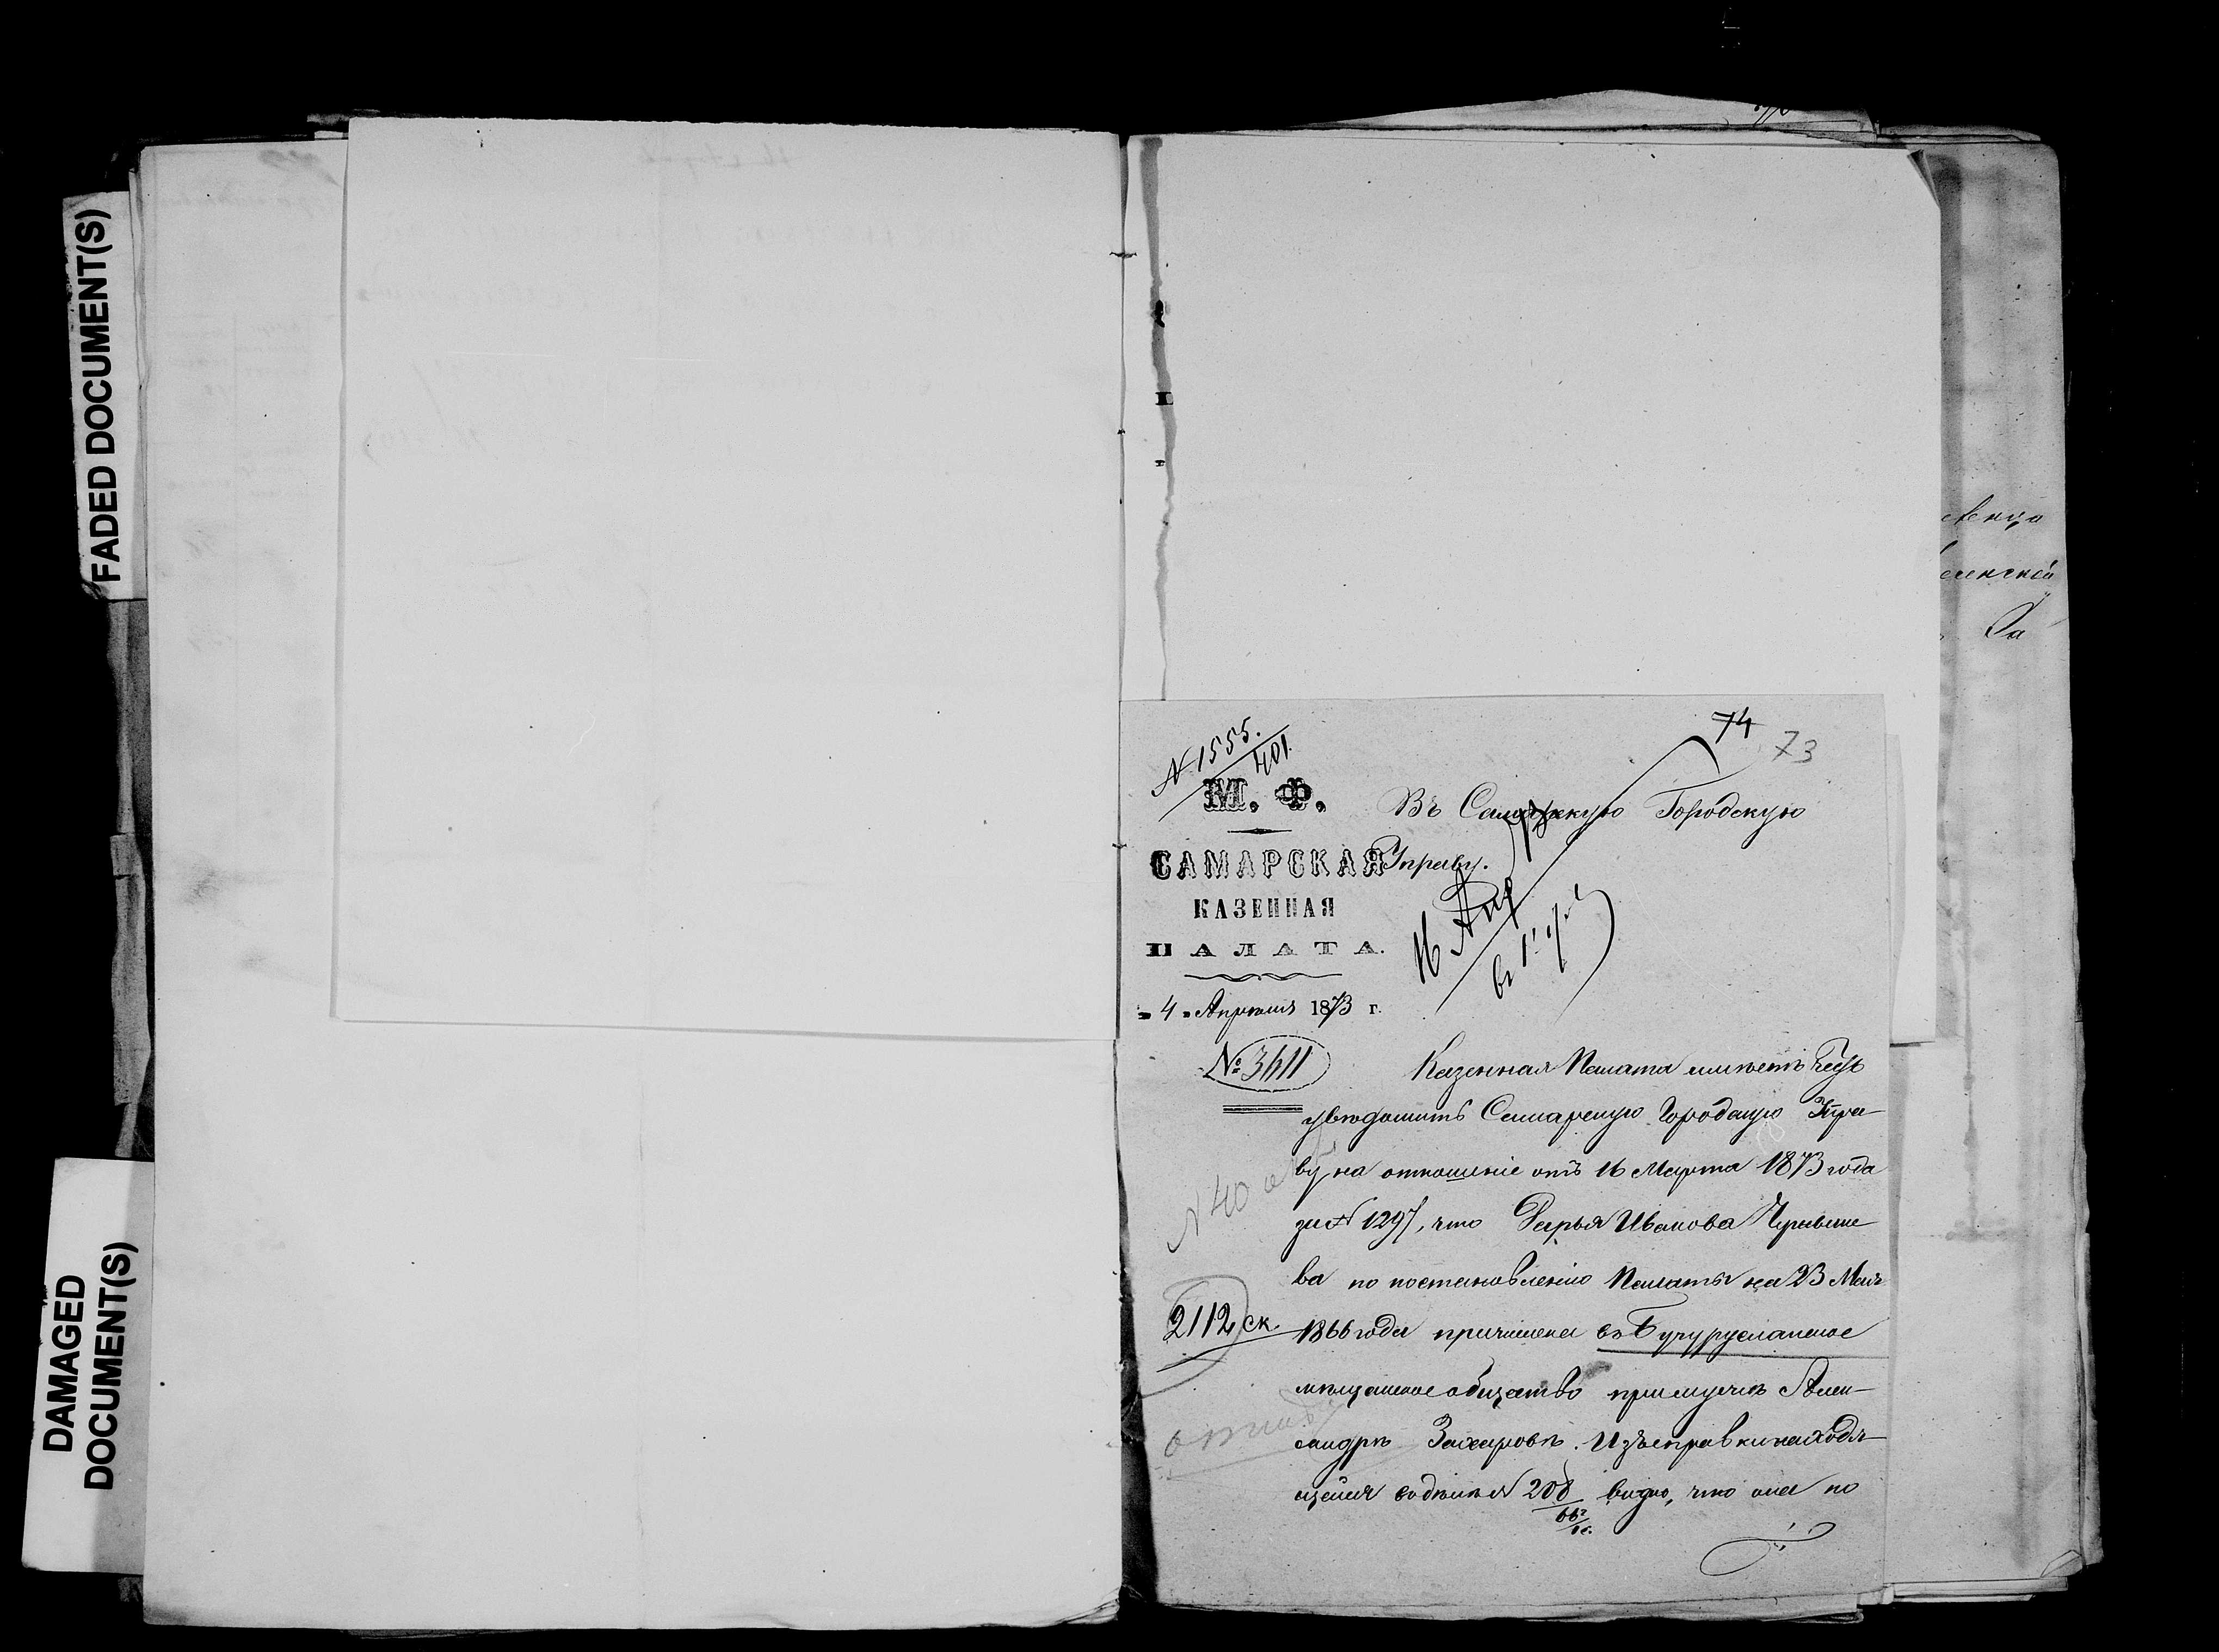 FADED DOCUMENT(S)
DAMAGED
DOCUMENT(S)
74
73
№ 1555.
401.
М. Ф.
САМАРСКАЯ
КАЗЕННАЯ
ПАЛАТА.
„4„ Апрѣля 1873 г.
№ 3611
Въ Самарскую Городскую
Управу.
16 Апр
Казенная Палата имѣетъ честь
увѣдомить Самарскую Городскую Упра-
ву на отношеніе отъ 16 Марта 1873 года
за № 1297, что Дарья Иванова
ва по постановленію Палаты на 23 Мая
1866 года причислена въ Бугурусланское
мѣщанское общество при мужѣ Алек-
сандрѣ Захаровѣ. Изъ справки находя-
щейся въ дѣлѣ № 208 видно, что она по
2112 ск.
№ 40